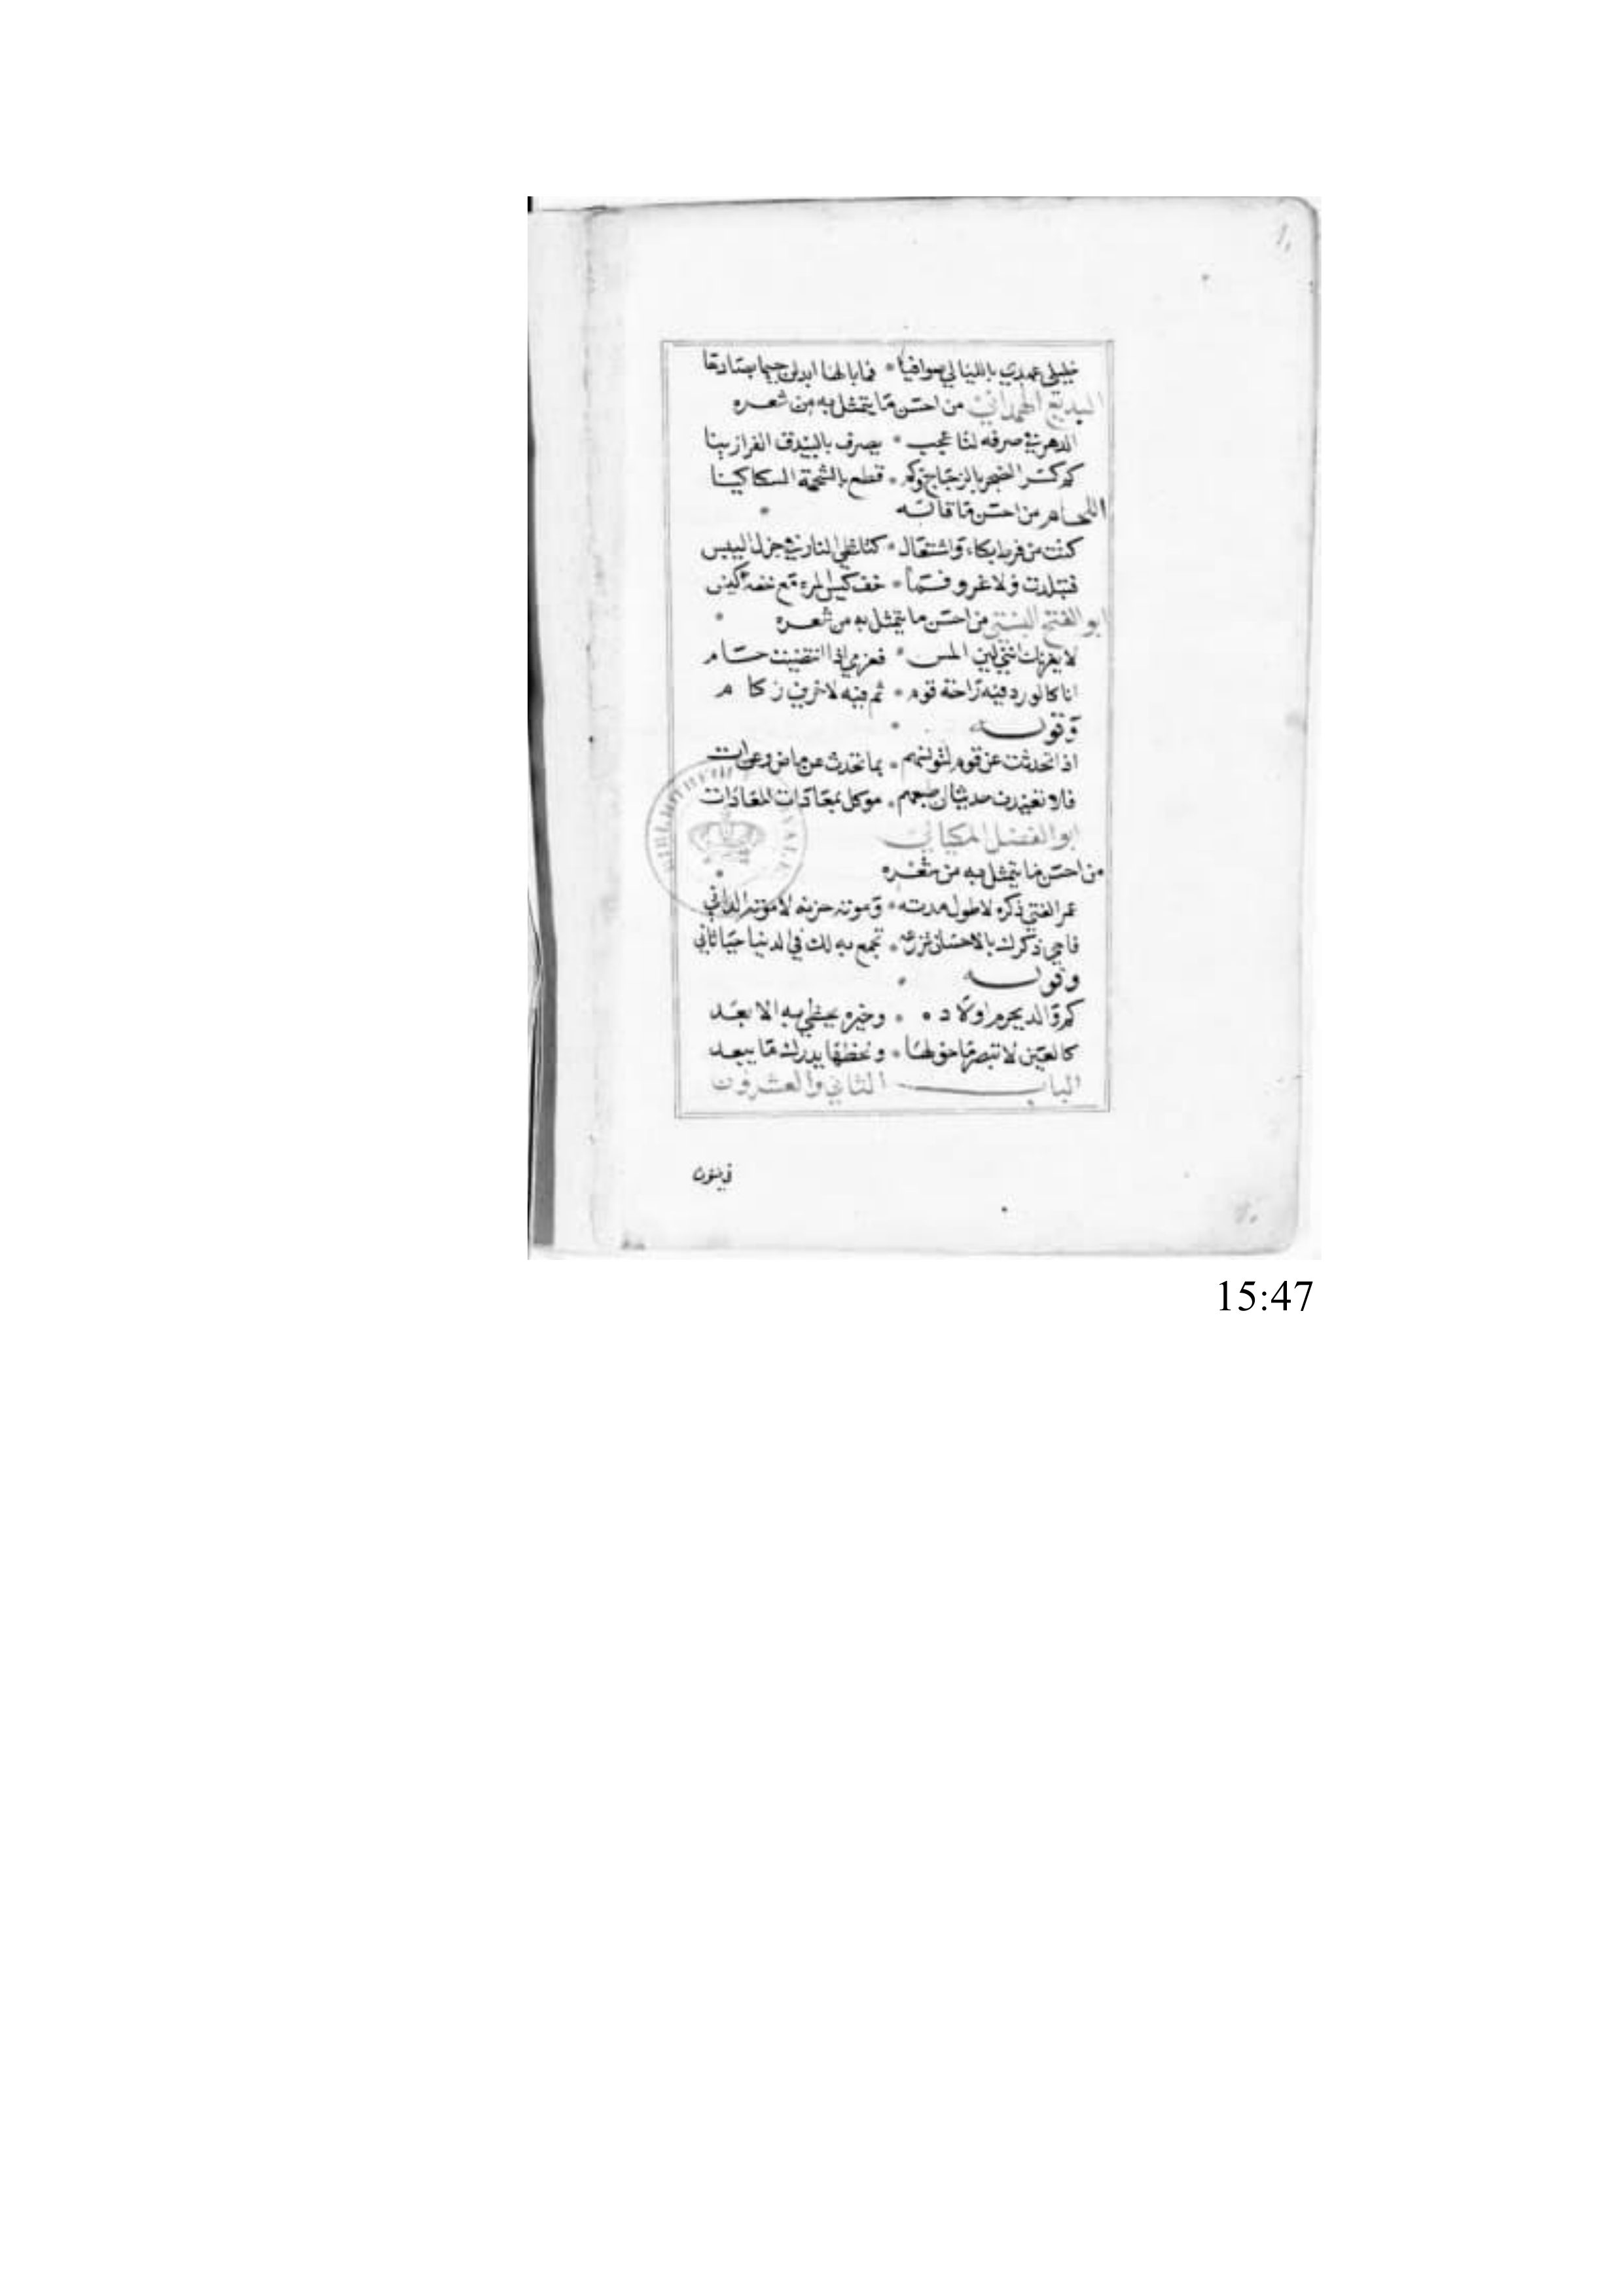 خليلي عهدي بالليالي صوافيا * فما بالها ابدلن جيما بصادها
البديع الهمداني من احسن ما يتمثل به من شعره
الدهر في صرفه لنا عجب * يصرف بالبيدق الفرازينا
كم كسر الصخر بالزجاج وكم * قطع بالشحمة السكاكينا
اللحام من احسن ما قاله
كنت من فرط ذكاء واشتعال * كتلظي النار في جزل اليبيس
فتبلدت ولا غرو فما * خف كيس المرء مع خفة كيس
ابو الفتح البستي من احسن ما يتمثل به من شعره
لا يغرنك انني لين المس * فعزمي اذا انتضيت حسام
انا كالورد فيه راحة قوم * ثم فيه لاخرين زكام
وقوله
اذا تحدثت عن قوم لتونسهم * بما تحدث عن ماض وعن ات
فلا تعيدن حديثا ان طبعهم * موكل بمعادات المعادات
ابو الفضل المكيالي
من احسن ما يتمثل به من شعره
عمر الفتى ذكره لا طول مدته * وموته حزنه لا موته الداني
فاحي ذكرك بالاحسان تزرعه * تجمع به لك في الدنيا حياتاني
وقوله
كم والد يحرم اولاده * وخيره يحظى به الابعد
كالعين لا تبصر ما حولها * ولحظها يدرك ما يبعد
الباب الثاني والعشرون
في فنون
15:47